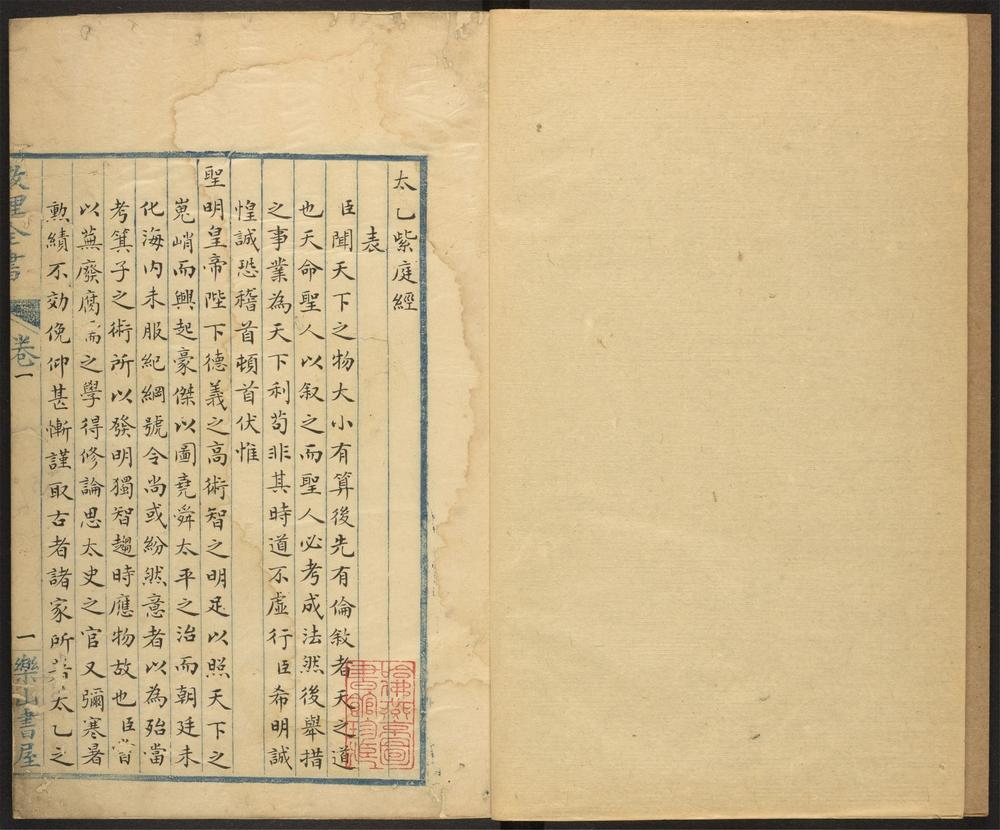 太乙紫庭經
表
臣聞天下之物大小有算後先有倫敘者天之道
也天命聖人以叙之而聖人必考成法然後舉措
之事業為天下利苟非其時道不虛行臣希明誠
惶誠恐稽首頓首伏惟
聖明皇帝陛下德義之高術智之明足以照天下之
嵬峭而興起豪傑以圖堯舜太平之治而朝廷未
化海內未服紀綱號令尚或紛然意者以為殆當
考箕子之術所以發明獨智趨時應物故也臣嘗
以蕪廢腐而之學得修論思太史之官又彌寒暑
勲績不効俛仰甚慚謹取古者諸家所著太乙之
數理全書
卷一
一
樂山書屋
哈佛燕京圖
書館珍藏